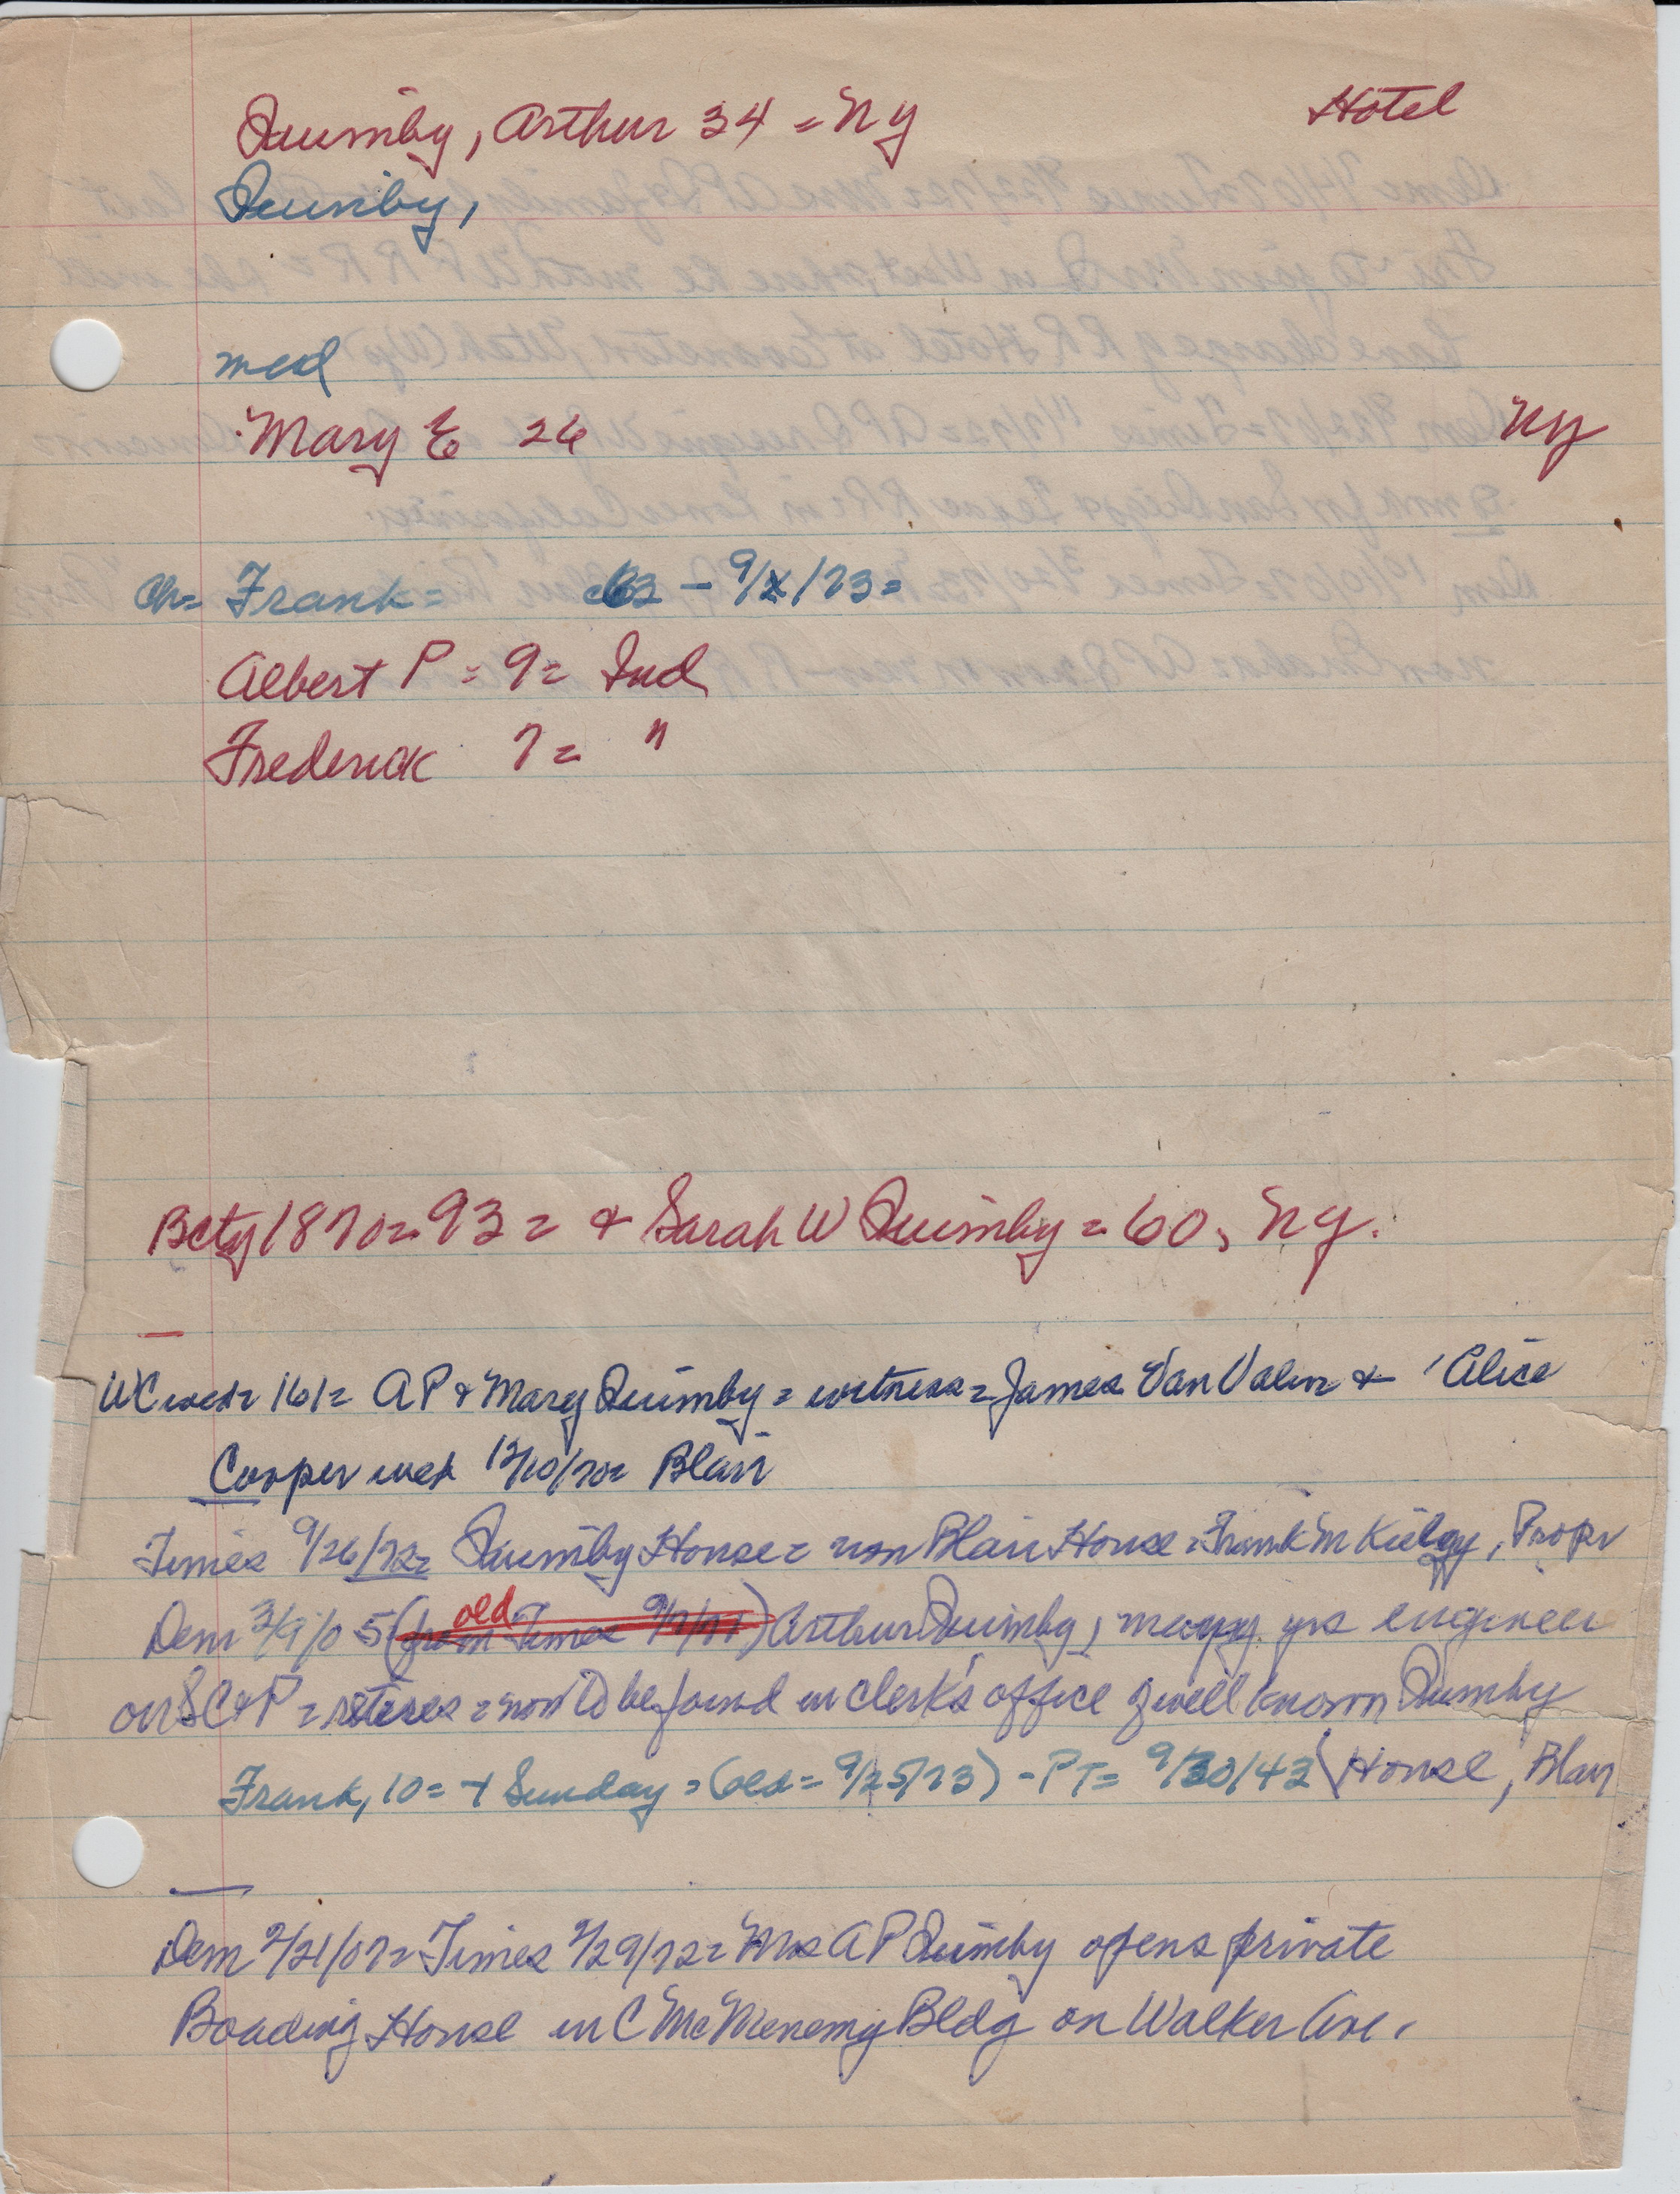 Quimby, Arthur 34 = Ny Hotel
Quimby,
med
Mary E 26 Ny
Ch= Frank = 63 - 9/x/73=
Albert P = 9 = Ind
Frederick 7 = "
Bcty 1870 = 93 = & Sarah W Quimby = 60, Ny.
WC wed = 161 = AP & Mary Quimby = witness = James Van Valin & Alice
Cooper wed 12/10/70= Blair
Times 9/26/72= Quimby House = now Blair House = Frank M , Propr
Dem 3/9/05 (from old Times 9/7/71) Arthur Quimby, many yrs engineer
on SC&P = retires = now to be found in clerk's office of well known Quimby
Frank, 10 = + Sunday = (old = 9/25/73) - PT= 9/30/43 (House, Blair
Dem 2/21/07= Times 2/29/72= Mrs AP Quimby opens private
Boading House in C McMenemy Bldg on Walker Ave.